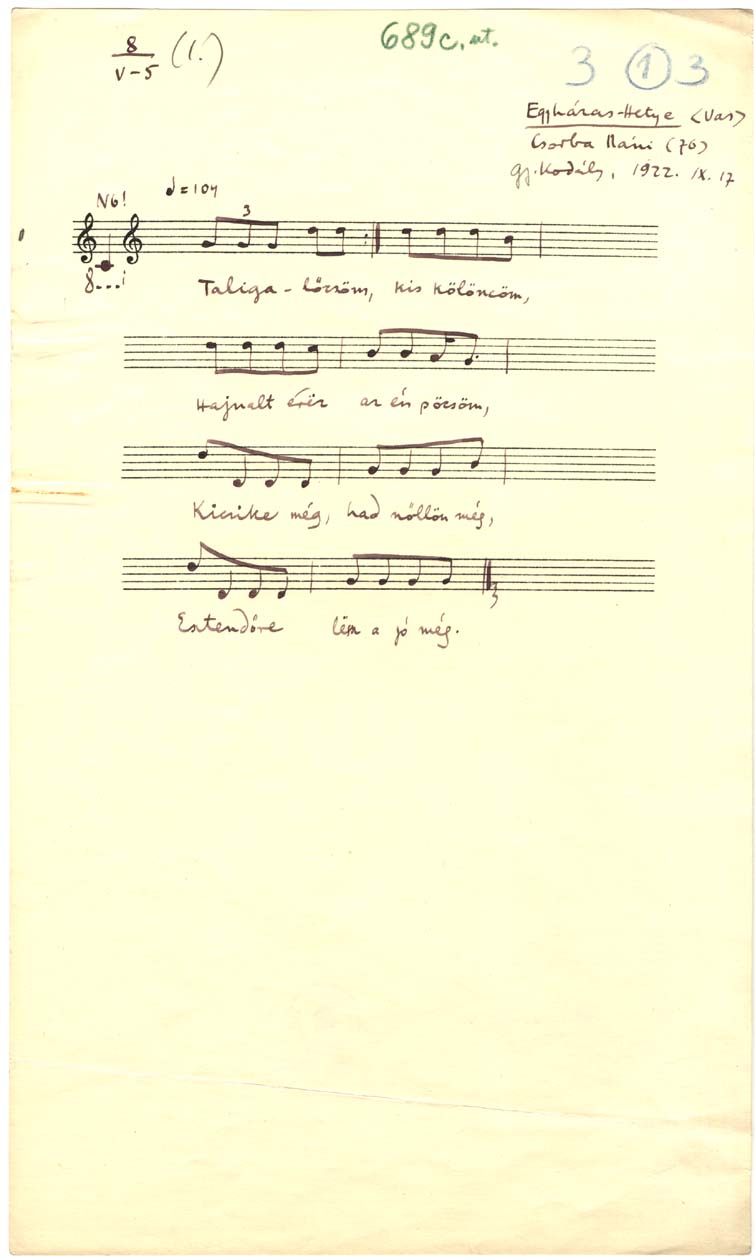 8
V-5
(1.)
689c. ut.
3 1 3
Egyházas-Hetye (Vas)
Csorba Náni (76)
gy. Kodály, 1922. IX. 17
NB!
= 104
3
8---
Taliga - lőcsöm, kis kölöncöm,
Hajnalt érëz az én pöcsöm,
Kicsike még, had nőllön még,
Esztendőre lësz a jó még.